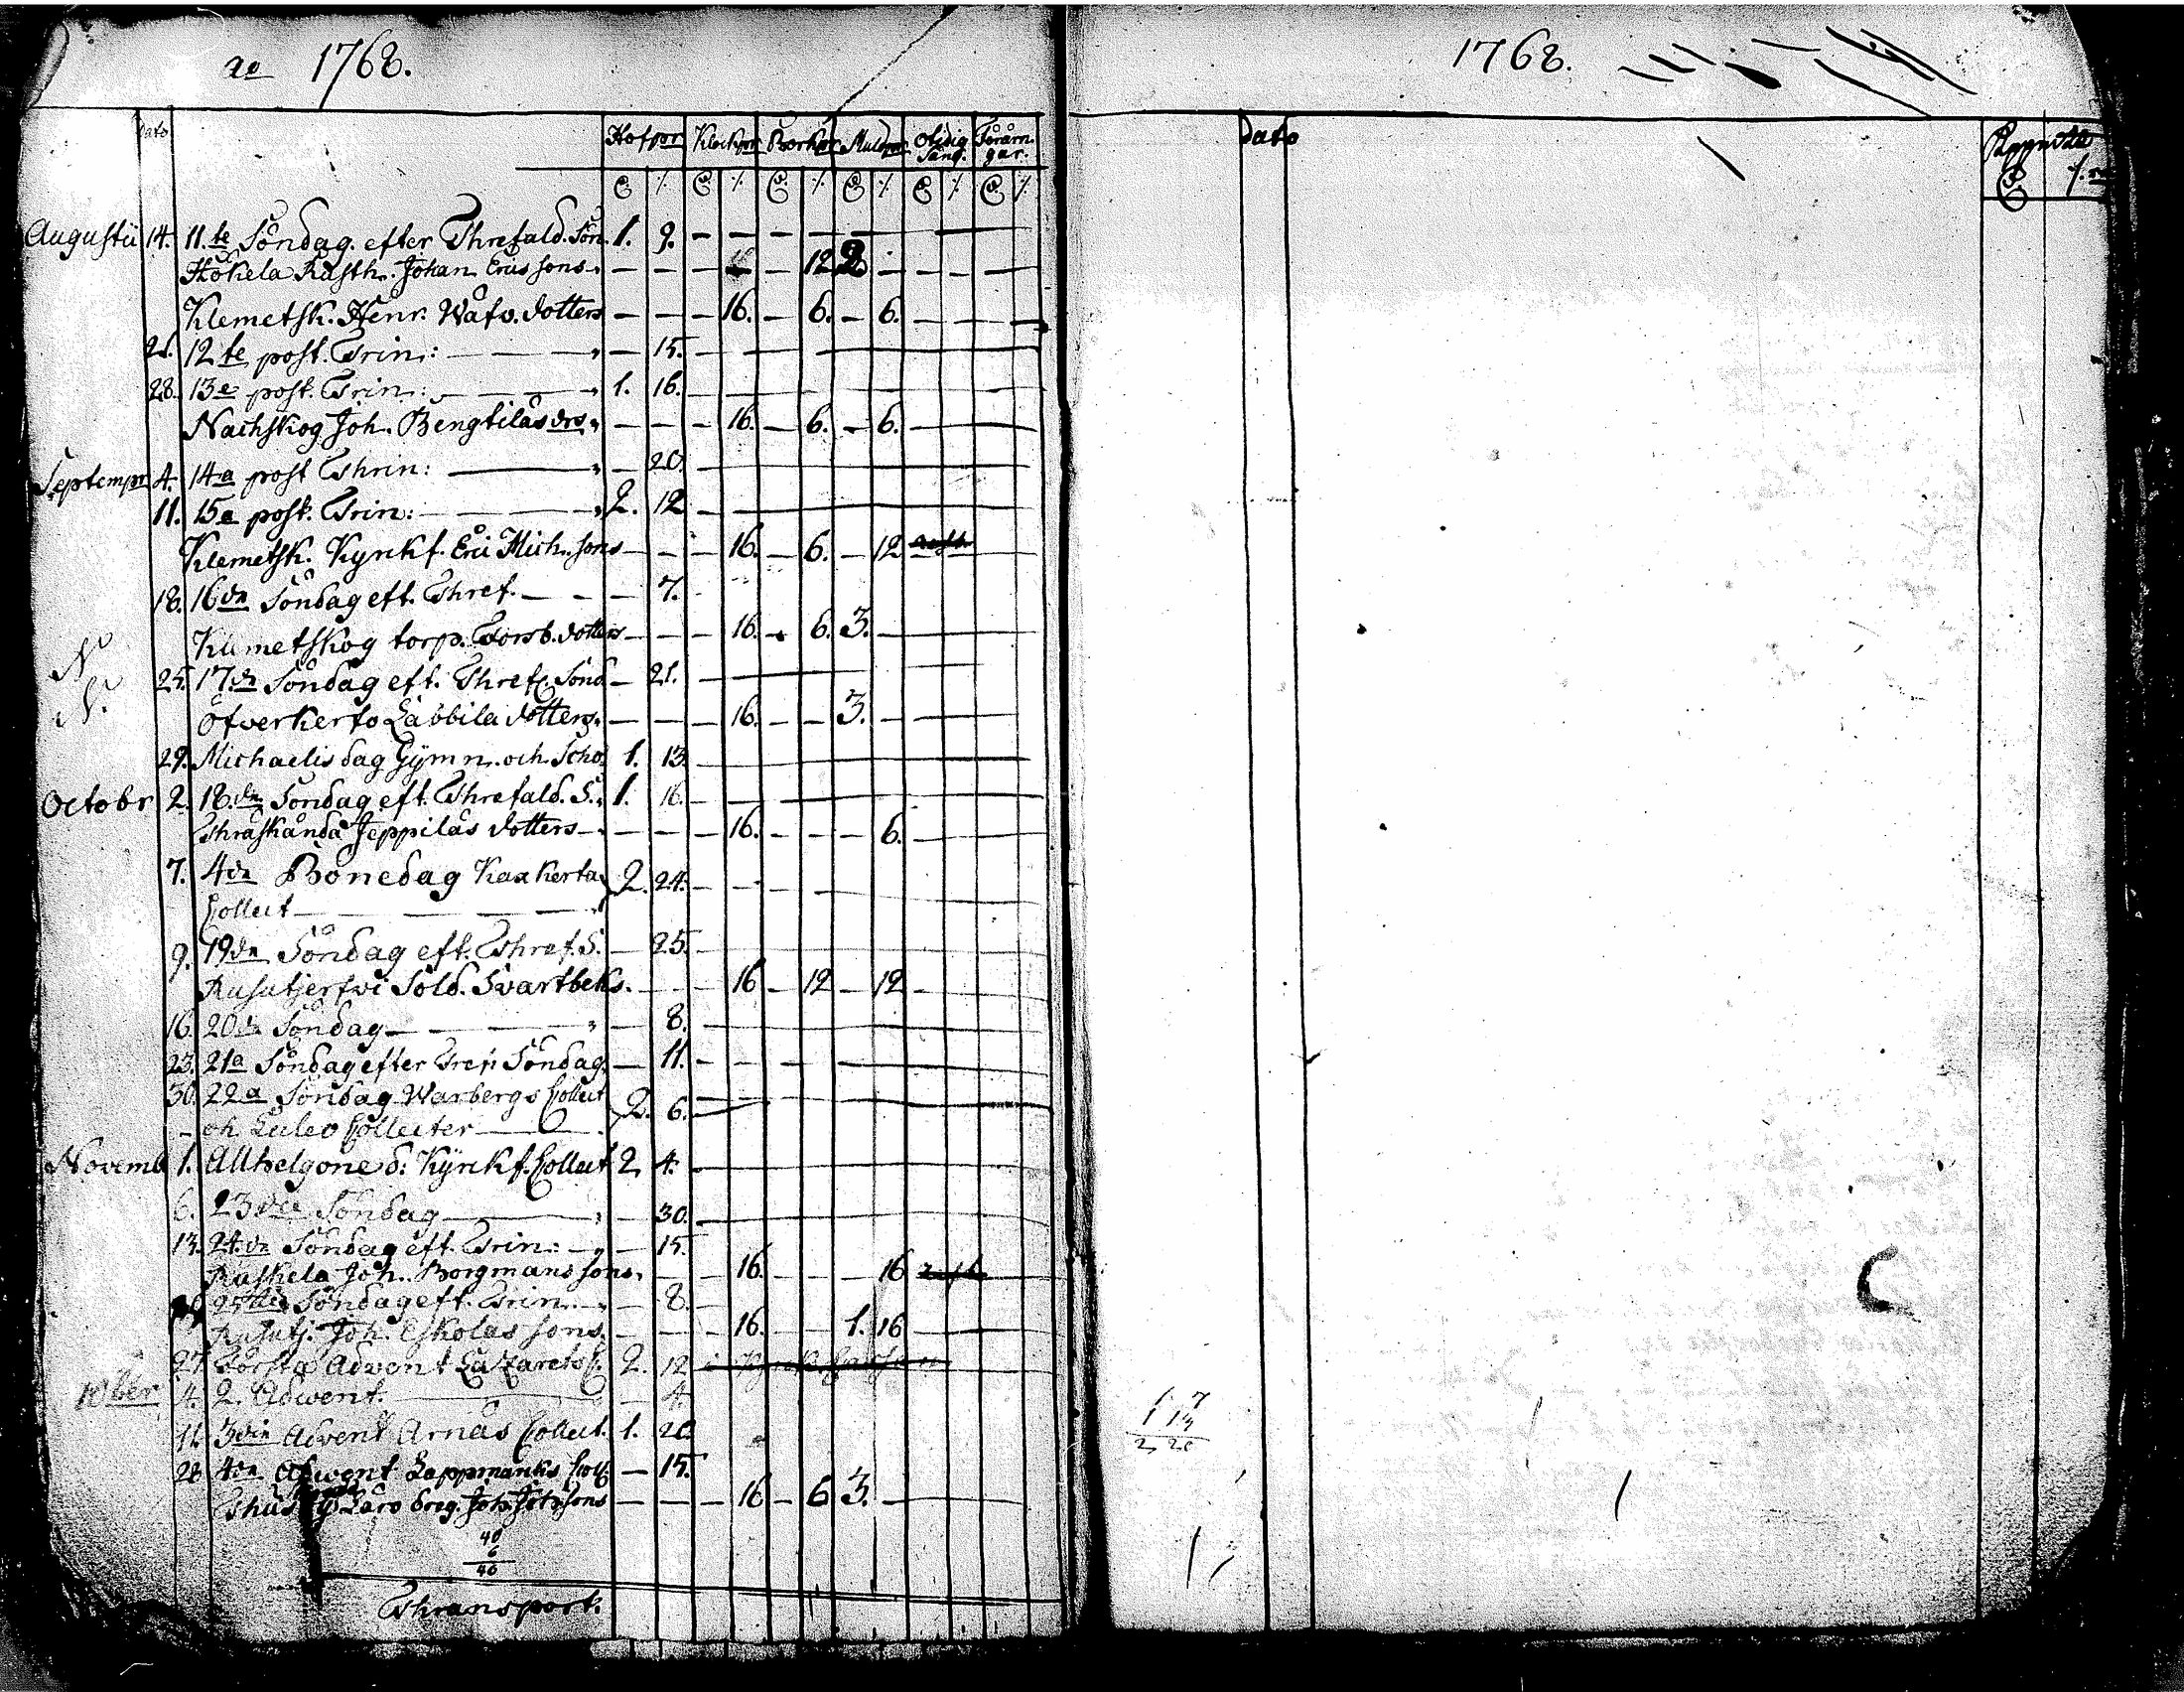 ao 1768.
dato Hofpr Klockpr Borkpr Mulpr Olidig Sång. Förärn gar.
Augustii 14. 11.te Söndag. efter Threfald. Sön. 1. 9.
Hokela Rusth. Johan Ericssons 12 2
Klemetsk. Henr. Wafv. dotters 16. 6. 6.
21. 12te post. Trin: 15.
28. 13e post. Trin: 1. 16.
Nachskog Joh. Bengtiläs drs 16. 6. 6.
Septempr 4. 14a post Thrin: 20
11. 15e post. Trin: 2. 12
Klemetsk. Kyrckf. Eric Mich. sons 16. 6. 12
18. 16de Söndag eft. Thref. 7.
Klemetskog torp. dotters 16. 6. 3.
N
25. 17de Söndag eft. Thref. Sönd 21.
Öfverkerto Labbila dotters 16. 3.
29. Michaelis dag Gymn. och Scho. 1. 13.
Octobr 2. 18de Söndag eft. Threfald. S. 1. 16.
Thräskända Jeppiläs dotters 16. 6.
7. 4de Bönedag Kaxkerta 2. 24.
Collect
9. 19de Söndag eft. Thref. S. 25.
Rusutjerfvi Sold. Svartbeks. 16 12 12
16. 20de Söndag 8.
23. 21a Söndag efter Tref. Söndag. 11.
30. 22a Söndag Warbergs Collect 2. 6.
oh Luleo Collecter
Novemb 1. Allhelgone d: Kyrckf. Collect 2 4.
6. 23de Söndag 30.
13. 24de Söndag eft. Trin: 15.
Ruskela Joh. Borgmans sons 16. 16
Söndag eft. Trin 8.
Rusutj. Joh. Eskolas sons. 16. 1. 16
27. Första Advent Lazarets C. 2. 12
10ber 4. 2. Adwent. 4.
11. 3die Advent Arnäs Collect. 1. 20
4de Adwent Lappmarks Coll. 15.
Thusby Joh. Joh. sons 16 6 3.
40
6
46
Thransport.
1768.
dato
1 7
1 13
2 20